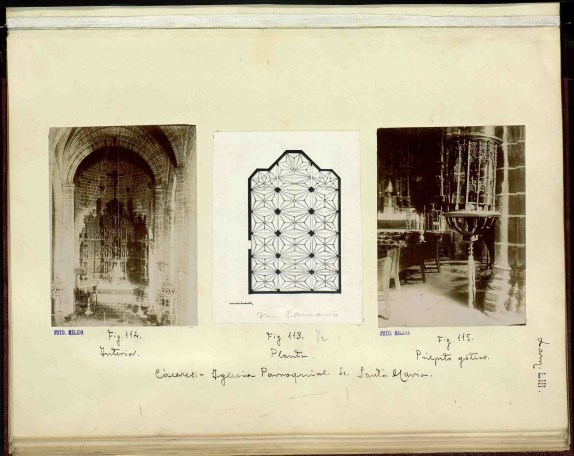 FOTO. MÉLIDA
Fig. 114.
Interior.
Fig. 113. 1/2
Planta
FOTO. MÉLIDA
Fig. 115.
Púlpito gótico.
Cáceres.- Iglesia Parroquial de Santa María.
Lam. LIII.